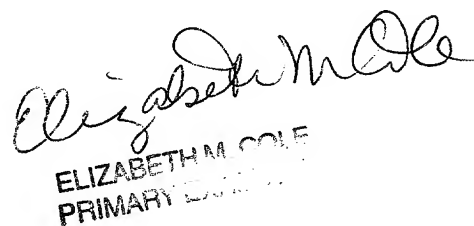 Elizabeth M Cole
ELIZABETH M. COLE
PRIMARY